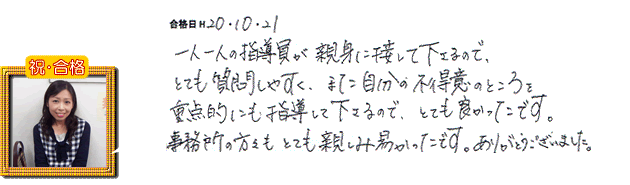 合格日 H 20・10・21
祝・合格
一人一人の指導員が 親身に接して下さるので、
とても質問しやすく、また自分の不得意のところを
重点的にも指導して下さるので、とても良かったです。
事務所の方々も とても親しみ易かったです。ありがとうございました。